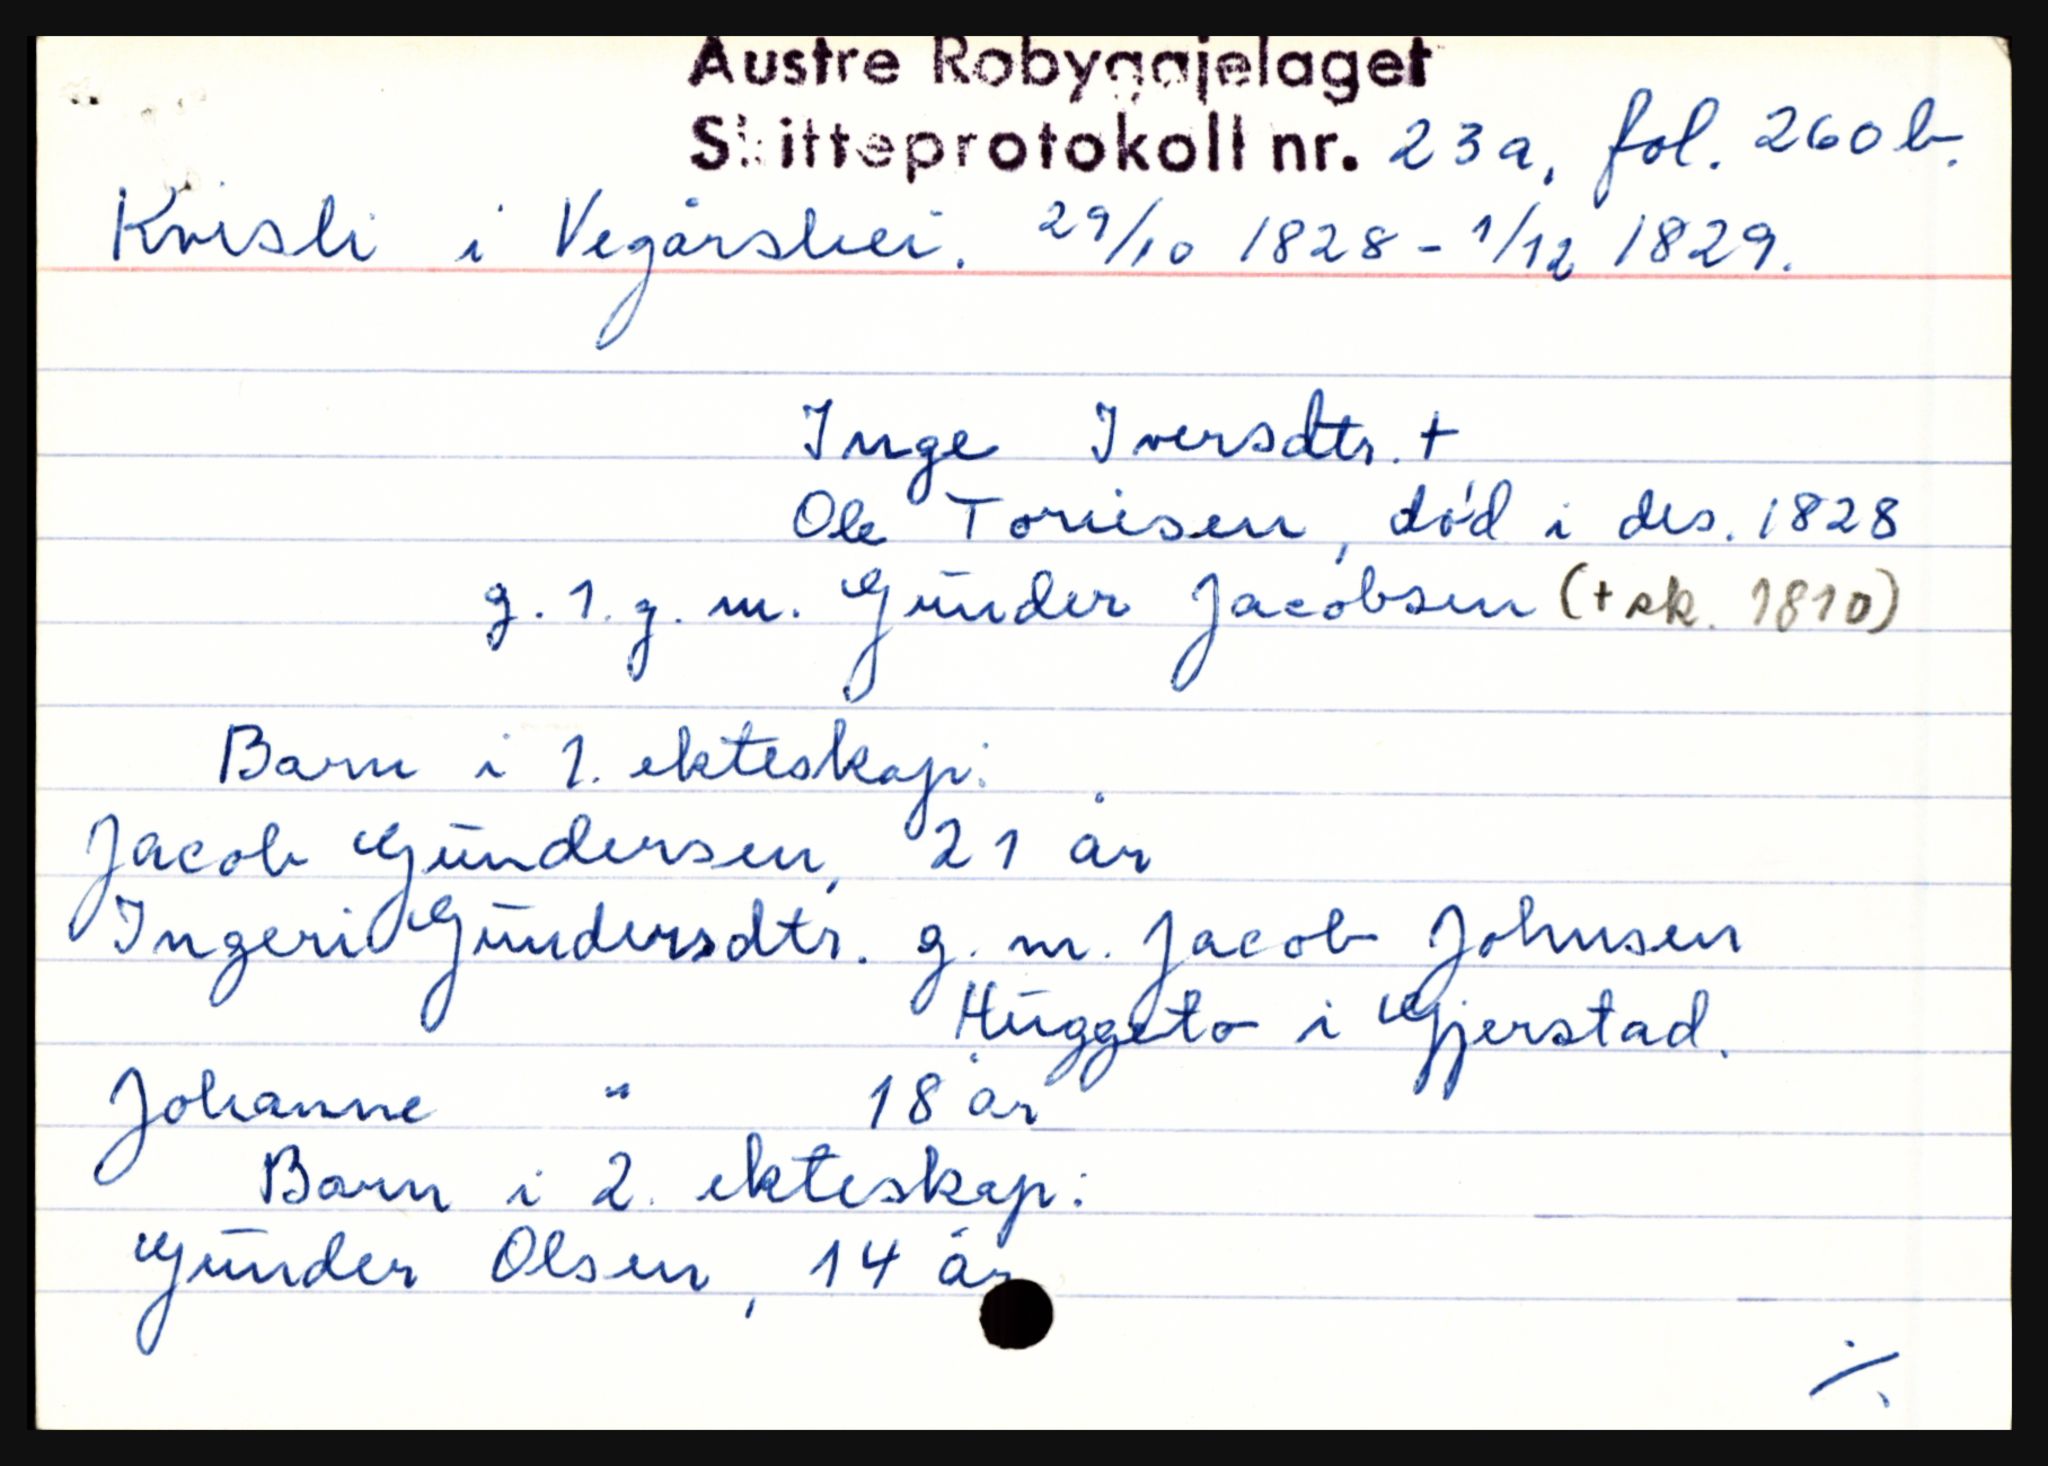 Austre Robyggjelaget
Skifteprotokoll nr. 23a, fol. 260b.
Kvisli i Vegårshei. 29/10 1828 - 1/12 1829.
Inge Iversdtr. +
Ole Tonisen, død i des. 1828
g. 1. g. m. Gunder Jacobsen (+ sk. 1810)
Barn i 1. ekteskap:
Jacob Gundersen, 21 år
Ingeri Gundersdtr. g. m. Jacob Johnsen
Huggeto i Gjerstad.
Johanne " 18 år
Barn i 2. ekteskap:
Gunder Olsen, 14 år
./.